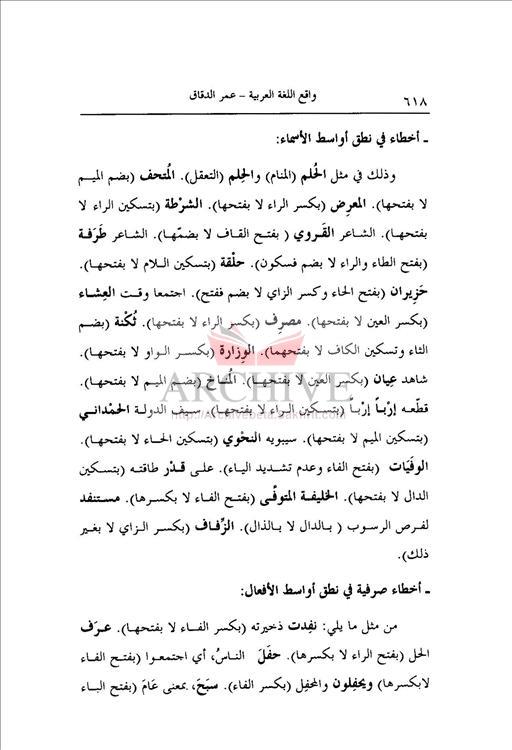 ٦١٨
واقع اللغة العربية – عمر الدقاق
ـ أخطاء في نطق أواسط الأسماء:
وذلك في مثل الحُلم (المنام) والحِلم (التعقل). المُتحف (بضم الميم
لا بفتحها). المعرِض (بكسر الراء لا بفتحها). الشرْطة (بتسكين الراء لا
بفتحها). الشاعر القَروي ( بفتح القاف لا بضمّها). الشاعر طَرَفة
(بفتح الطاء والراء لا بضم فسكون). حلْقة (بتسكين اللام لا بفتحها).
حَزِيران (بفتح الحاء وكسر الزاي لا بضم ففتح). اجتمعا وقت العِشاء
(بكسر العين لا بفتحها). مصرِف (بكسر الراء لا بفتحها). ثُكْنة (بضم
الثاء وتسكين الكاف لا بفتحهما). الوِزارة (بكسر الواو لا بفتحها).
شاهد عِيان (بكسر العين لا بفتحها). المُناخ (بضم الميم لا بفتحها).
قطّعه إرْباً إرْباً (بتسكين الراء لا بفتحها). سيف الدولة الحمْداني
(بتسكين الميم لا بفتحها). سيبويه النحْوي (بتسكين الحاء لا بفتحها).
الوفَيَات (بفتح الفاء وعدم تشديد الياء). على قدْر طاقته (بتسكين
الدال لا بفتحها). الخليفة المتوفَّى (بفتح الفاء لا بكسرها). مستنفد
لفرص الرسوب ( بالدال لا بالذال). الزِّفاف (بكسر الزاي لا بغير
ذلك).
ـ أخطاء صرفية في نطق أواسط الأفعال:
من مثل ما يلي: نفِدت ذخيرته (بكسر الفاء لا بفتحها). عـرَف
الحل (بفتح الراء لا بكسرها). حفَلَ الناسُ، أي اجتمعوا (بفتح الفاء
لابكسرها) ويحفِلون والمحفِل (بكسر الفاء). سبَحَ، بمعنى عَامَ (بفتح الباء
ARCHIVE